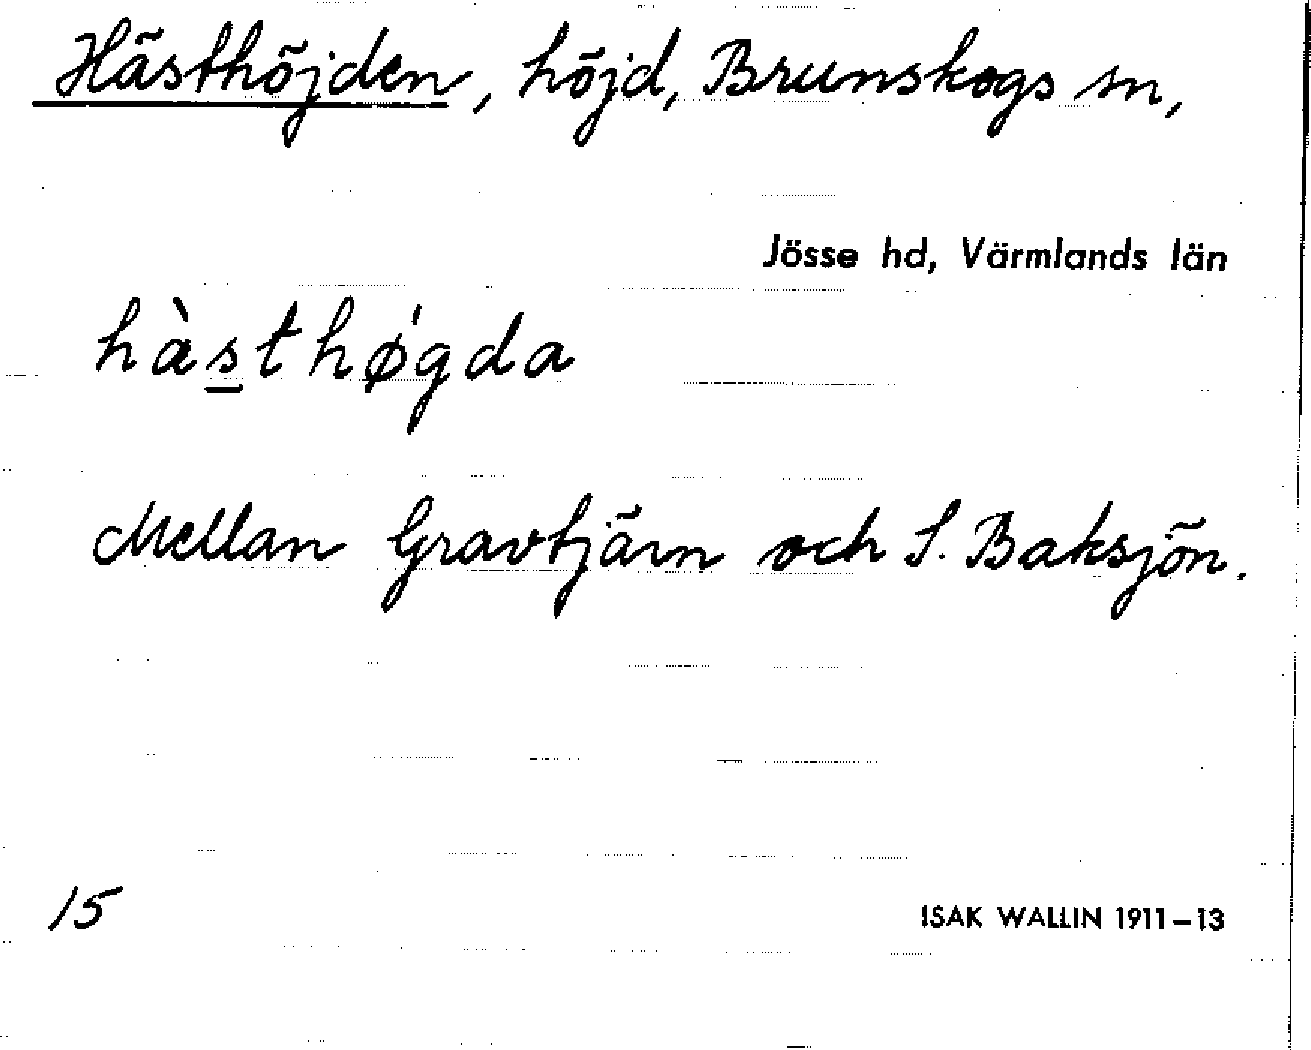 Hästhöjden, höjd, Brunskogs sn,
Jösse hd, Värmlands län
hàsthǿgda
Mellan Gravtjärn och S. Baksjön.
15
ISAK WALLIN 1911–13